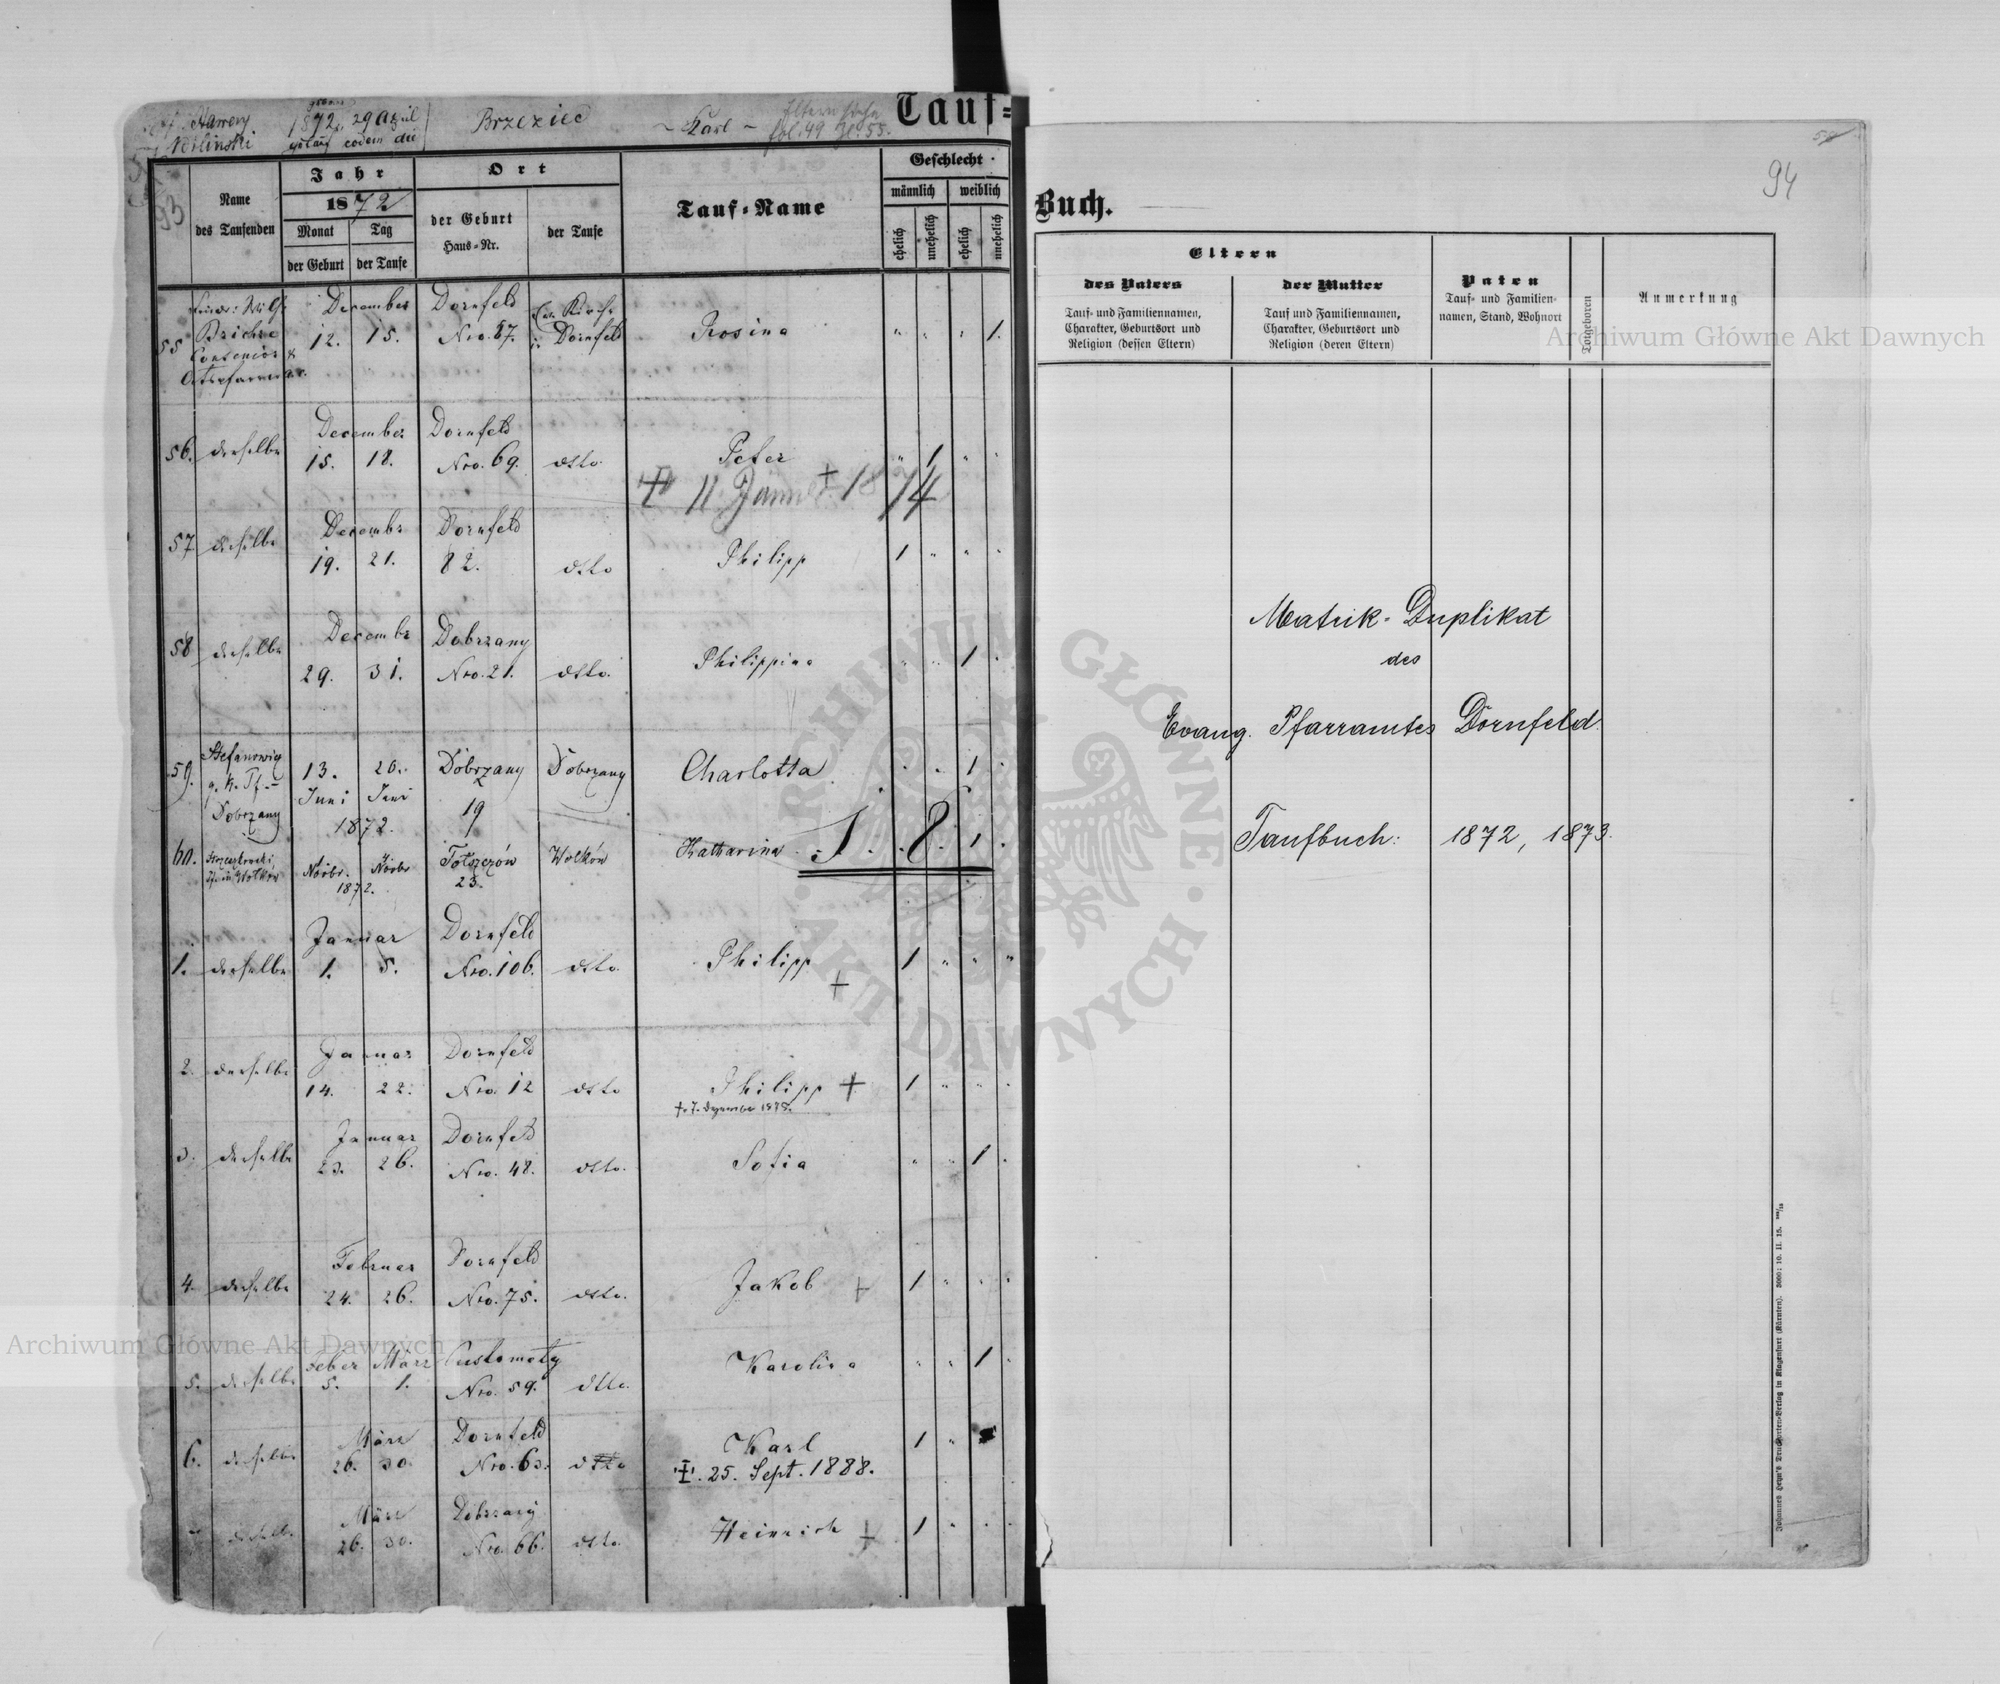 1872, 29 April
Brzeziec
- Karl -
Eltern siehe
fol. 49 Zl. 55.
Tauf=
getauft eodem die
93
Name
des Taufenden
Jahr
1872
Monat
Tag
der Geburt
der Taufe
Ort
der Geburt
Haus=Nr.
der Taufe
Tauf=Name
Geschlecht
männlich
weiblich
ehelich
unehelich
ehelich
unehelich
55
December
12. 15.
Dornfeld
Nro. 87.
Dornfeld
Rosina
" " " 1.
56. derselbe
December
15. 18.
Dornfeld
Nro. 69.
dtto.
Peter
" 1 " "
11 Jänner 1874
57 derselbe
Decembr
19. 21.
Dornfeld
82.
dtto
Philipp
1 " " "
58 derselbe
Decembr
29. 31.
Dobrzany
Nro. 21.
dtto.
Philippina
" " 1 "
59.
Dobrzany
13. 20.
Juni Juni
1872.
Dobrzany
19
Dobrzany
Charlotta
1
60.
Novbr. Novbr
1872.
Tolszczów
23.
Wolków
Katharina
1. 8. 1
1. derselbe
Januar
1. 5.
Dornfeld
Nro. 106.
dtto.
Philipp +
1 " " "
2. derselbe
Januar
14. 22.
Dornfeld
Nro. 12
dtto
Philipp +
1 " " "
3. derselbe
Januar
23. 26.
Dornfeld
Nro. 48.
dtto.
Sofia
" " 1 .
4. derselbe
Februar
24. 26.
Dornfeld
Nro. 75.
dtto.
Jakob +
1 " " "
5. derselbe
Feber März
5. 1.
Pustomety
Nro. 59.
dtto.
Karolina
" " 1 .
6. derselbe
März
26. 30.
Dornfeld
Nro. 63.
dtto
Karl
25. Sept. 1888.
1 "
derselbe
März
26. 30.
Dobrzany
Nro. 66.
dtto.
Heinrich +
1 " . .
94
Buch.
Eltern
des Vaters
Tauf= und Familiennamen,
Charakter, Geburtsort und
Religion (dessen Eltern)
der Mutter
Tauf und Familiennamen,
Charakter, Geburtsort und
Religion (deren Eltern)
Paten
Tauf= und Familien-
namen, Stand, Wohnort
Totgeboren
Anmerkung
Matrik-Duplikat
des
Evang. Pfarramtes Dornfeld.
Taufbuch: 1872, 1873.
Archiwum Główne Akt Dawnych
Archiwum Główne Akt Dawnych
ARCHIWUM GŁÓWNE · AKT DAWNYCH ·